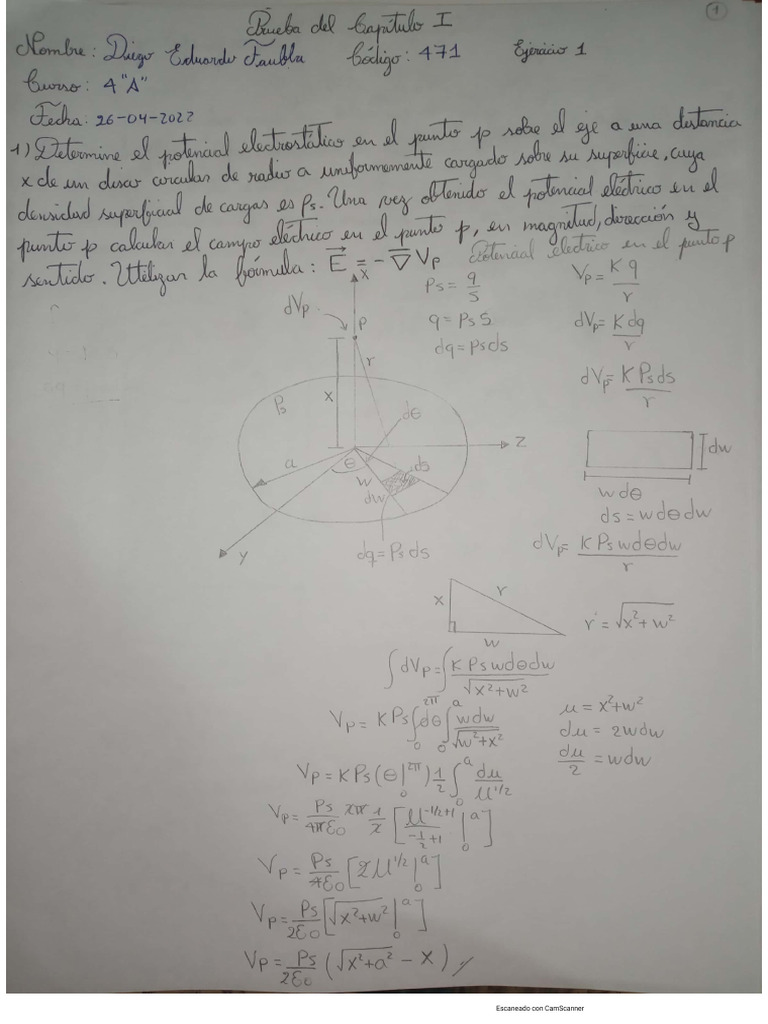 1
Prueba del Capítulo I
Nombre: Diego Eduardo Taubla Código: 471 Ejercicio 1
Curso: 4 "A"
Fecha: 26-04-2022
1) Determine el potencial electrostático en el punto p sobre el eje a una distancia
x de un disco circular de radio a uniformemente cargado sobre su superficie, cuya
densidad superficial de cargas es ρs. Una vez obtenido el potencial eléctrico en el
punto p calcular el campo eléctrico en el punto p, en magnitud, dirección y
sentido. Utilizar la fórmula: E⃗ = -∇⃗ Vp Potencial electrico en el punto p
x
dVp
p
r
x
ρs
dθ
a
θ
w
ds
dw
z
y
dq = ρs ds
ρs = q/s
q = ρs s
dq = ρs ds
Vp = K q / r
dVp = K dq / r
dVp = K ρs ds / r
dw
w dθ
ds = w dθ dw
dVp = K ρs w dθ dw / r
x
r
w
r = √(x² + w²)
∫ dVp = ∫ K ρs w dθ dw / √(x² + w²)
Vp = K ρs ∫₀^2π dθ ∫₀^a w dw / √(w² + x²)
μ = x² + w²
dμ = 2w dw
dμ/2 = w dw
Vp = K ρs (θ |₀^2π) 1/2 ∫₀^a dμ / μ^1/2
Vp = ρs/4πε₀ 2π 1/2 [μ^(-1/2+1) / (-1/2+1) |₀^a]
Vp = ρs/4ε₀ [2 μ^1/2 |₀^a]
Vp = ρs/2ε₀ [√(x² + w²) |₀^a]
Vp = ρs/2ε₀ (√(x² + a²) - x)
Escaneado con CamScanner